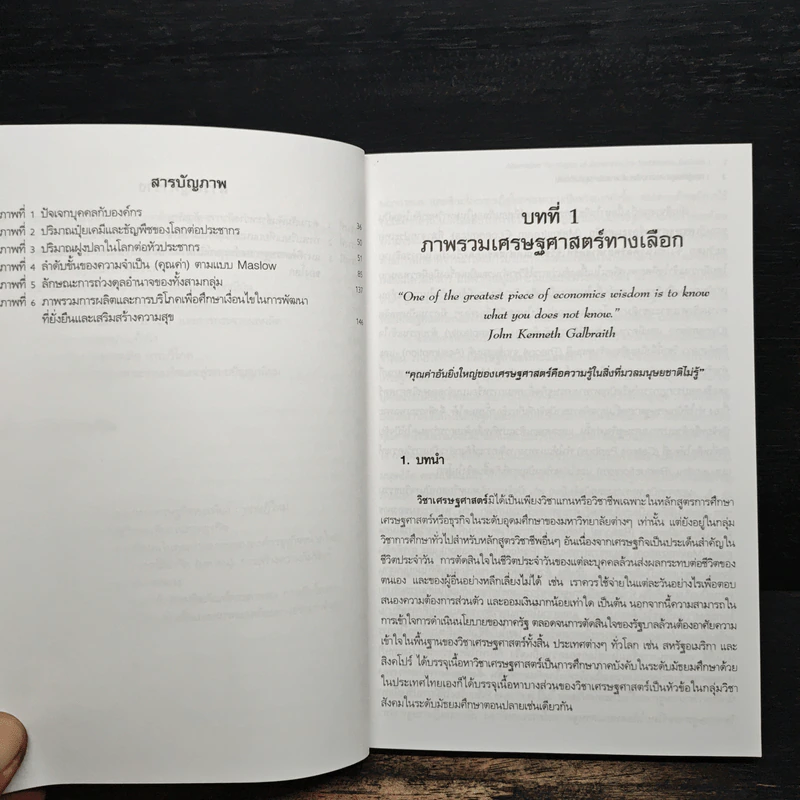 สารบัญภาพ
ภาพที่ 1 ปัจเจกบุคคลกับองค์กร 36
ภาพที่ 2 ปริมาณปุ๋ยเคมีและธัญพืชของโลกต่อประชากร 50
ภาพที่ 3 ปริมาณฝูงปลาในโลกต่อหัวประชากร 51
ภาพที่ 4 ลำดับขั้นของความจำเป็น (คุณค่า) ตามแบบ Maslow 85
ภาพที่ 5 ลักษณะการถ่วงดุลอำนาจของทั้งสามกลุ่ม 137
ภาพที่ 6 ภาพรวมการผลิตและการบริโภคเพื่อศึกษาเงื่อนไขในการพัฒนา
ที่ยั่งยืนและเสริมสร้างความสุข 146
บทที่ 1
ภาพรวมเศรษฐศาสตร์ทางเลือก
“One of the greatest piece of economics wisdom is to know
what you does not know.”
John Kenneth Galbraith
“คุณค่าอันยิ่งใหญ่ของเศรษฐศาสตร์คือความรู้ในสิ่งที่มวลมนุษยชาติไม่รู้”
1. บทนำ
วิชาเศรษฐศาสตร์มิได้เป็นเพียงวิชาแกนหรือวิชาชีพเฉพาะในหลักสูตรการศึกษา
เศรษฐศาสตร์หรือธุรกิจในระดับอุดมศึกษาของมหาวิทยาลัยต่างๆ เท่านั้น แต่ยังอยู่ในกลุ่ม
วิชาการศึกษาทั่วไปสำหรับหลักสูตรวิชาชีพอื่นๆ อันเนื่องจากเศรษฐกิจเป็นประเด็นสำคัญใน
ชีวิตประจำวัน การตัดสินใจในชีวิตประจำวันของแต่ละบุคคลล้วนส่งผลกระทบต่อชีวิตของ
ตนเอง และของผู้อื่นอย่างหลีกเลี่ยงไม่ได้ เช่น เราควรใช้จ่ายในแต่ละวันอย่างไรเพื่อตอบ
สนองความต้องการส่วนตัว และออมเงินมากน้อยเท่าใด เป็นต้น นอกจากนี้ความสามารถใน
การเข้าใจการดำเนินนโยบายของภาครัฐ ตลอดจนการตัดสินใจของรัฐบาลล้วนต้องอาศัยความ
เข้าใจในพื้นฐานของวิชาเศรษฐศาสตร์ทั้งสิ้น ประเทศต่างๆ ทั่วโลก เช่น สหรัฐอเมริกา และ
สิงคโปร์ ได้บรรจุเนื้อหาวิชาเศรษฐศาสตร์เป็นการศึกษาภาคบังคับในระดับมัธยมศึกษาด้วย
ในประเทศไทยเองก็ได้บรรจุเนื้อหาบางส่วนของวิชาเศรษฐศาสตร์เป็นหัวข้อในกลุ่มวิชา
สังคมในระดับมัธยมศึกษาตอนปลายเช่นเดียวกัน